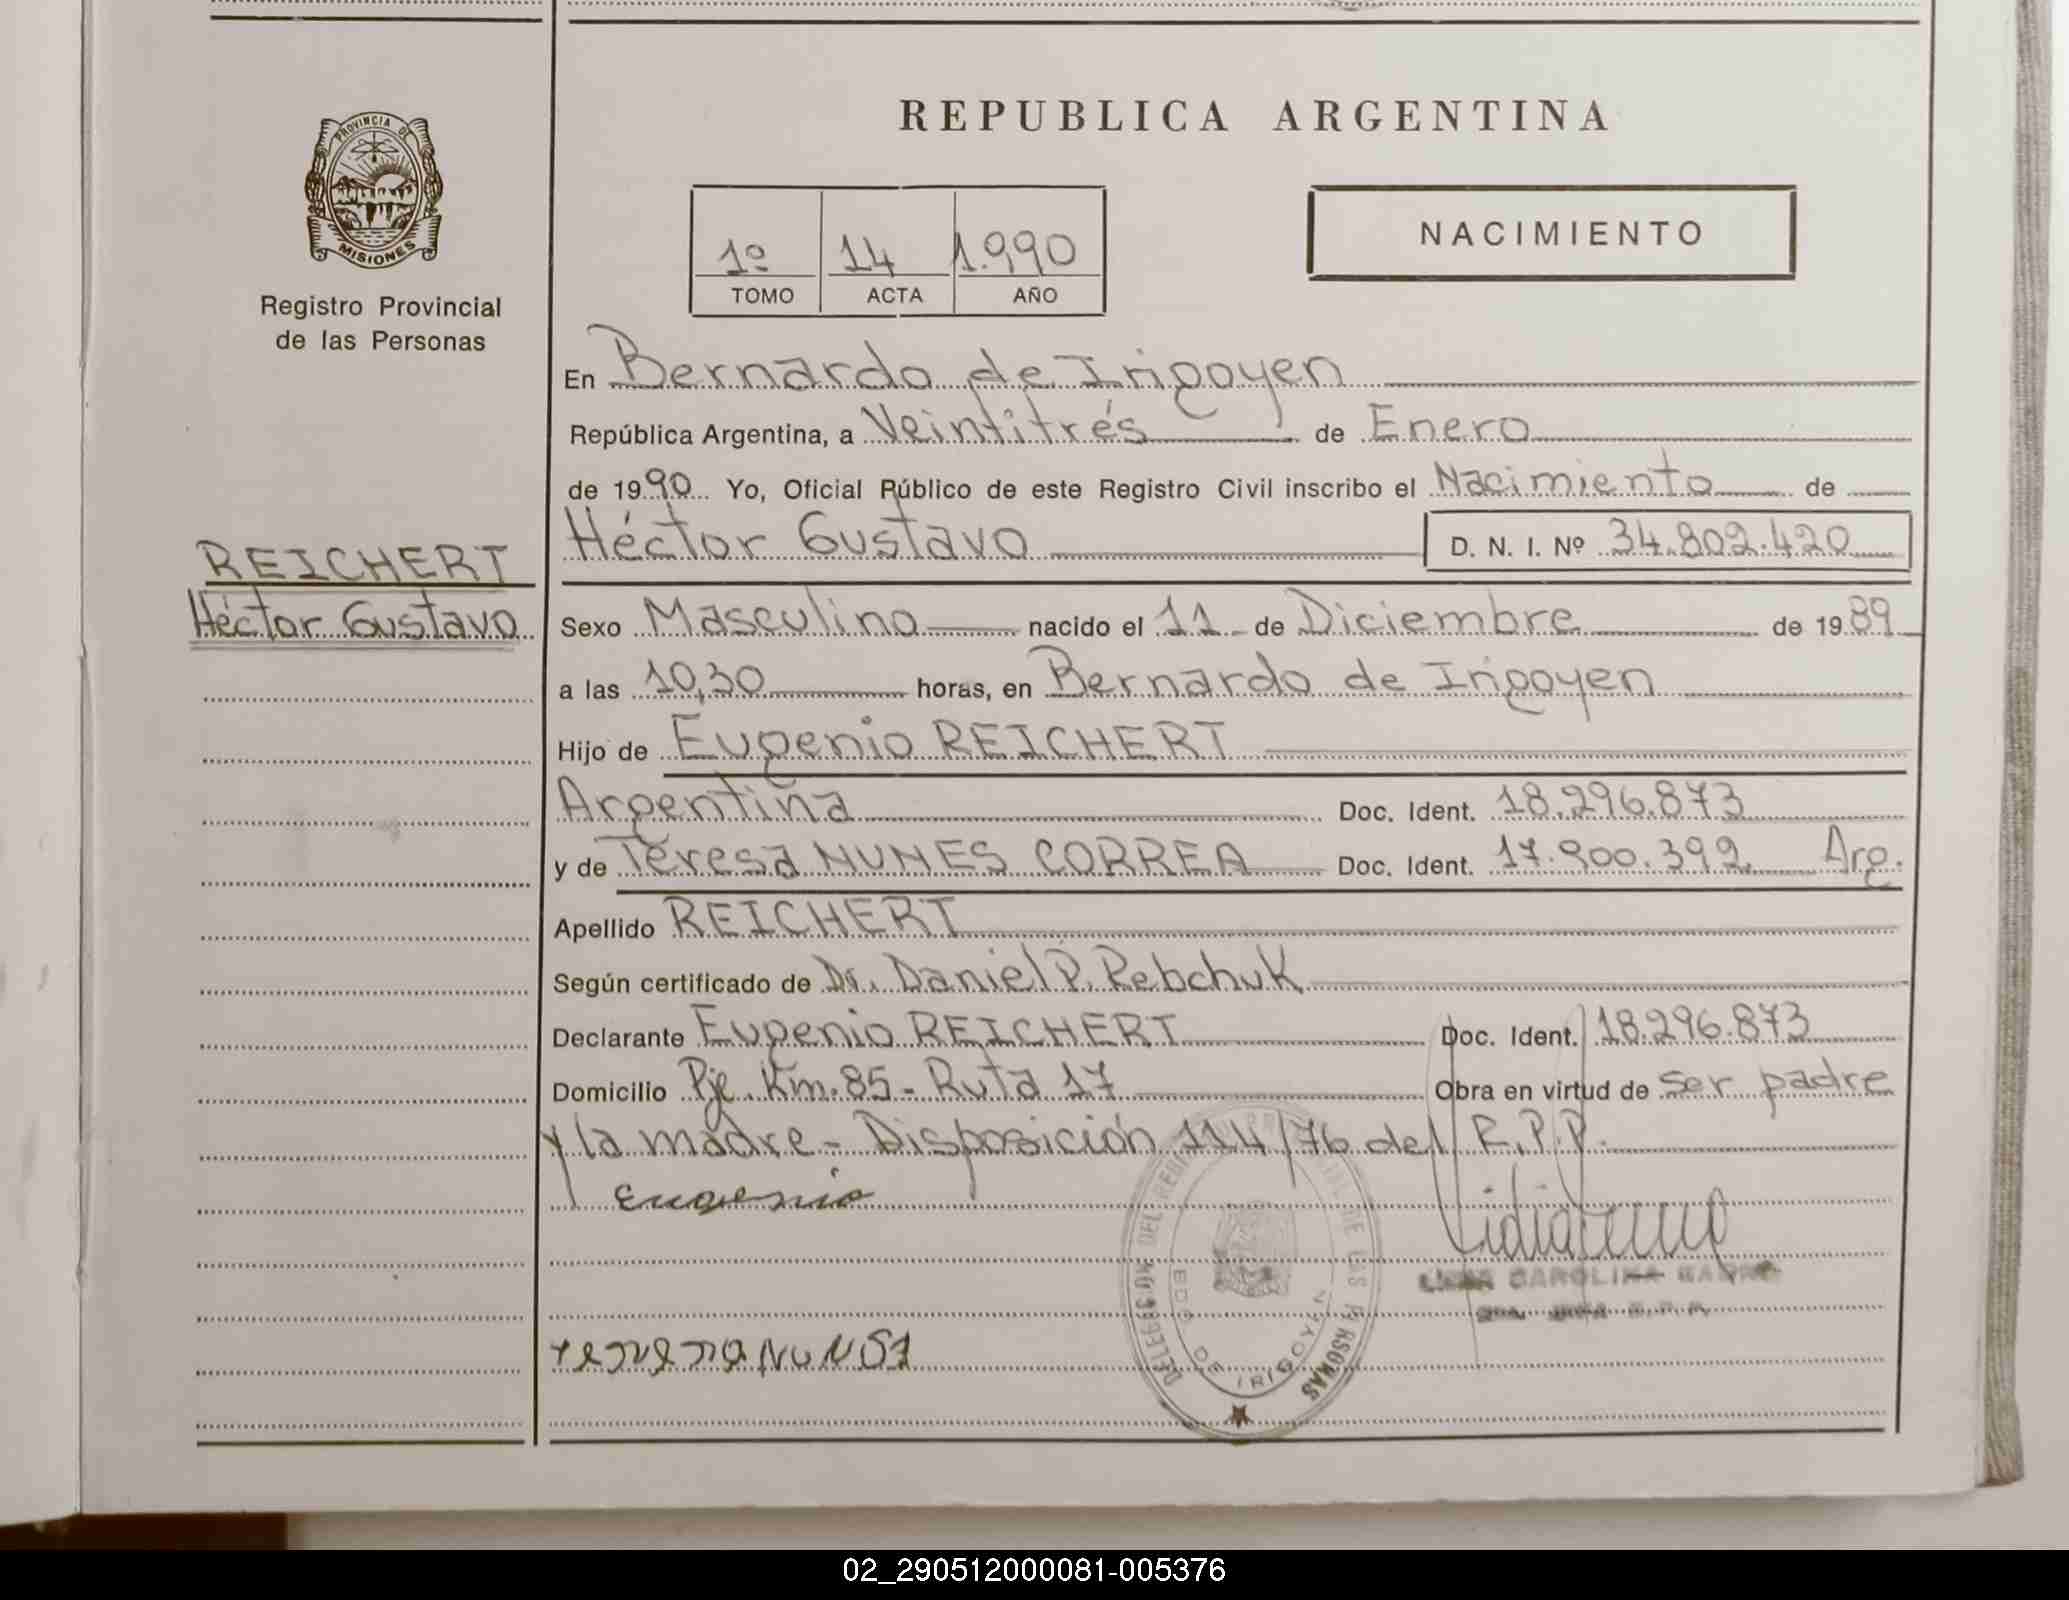 REPUBLICA ARGENTINA
PROVINCIA DE
MISIONES
Registro Provincial
de las Personas
1º 14 1.990
TOMO ACTA AÑO
NACIMIENTO
En Bernardo de Irigoyen
República Argentina, a Veintitrés de Enero
de 1990 Yo, Oficial Público de este Registro Civil inscribo el Nacimiento de
Héctor Gustavo D. N. I. Nº 34.802.420
REICHERT
Héctor Gustavo
Sexo Masculino nacido el 11 de Diciembre de 1989
a las 10,30 horas, en Bernardo de Irigoyen
Hijo de Eugenio REICHERT
Argentina Doc. Ident. 18.296.873
y de Teresa NUNES CORREA Doc. Ident. 17.900.392 Arg.
Apellido REICHERT
Según certificado de Dr. Daniel P. Rebchuk
Declarante Eugenio REICHERT Doc. Ident. 18.296.873
Domicilio Pje. Km. 85 - Ruta 17 Obra en virtud de ser padre
y la madre - Disposición 114/76 del R.P.P.
Eugenio
DELEGACION DEL REGISTRO PROVINCIAL DE LAS PERSONAS
BDO. DE IRIGOYEN
CAROLINA
02_290512000081-005376